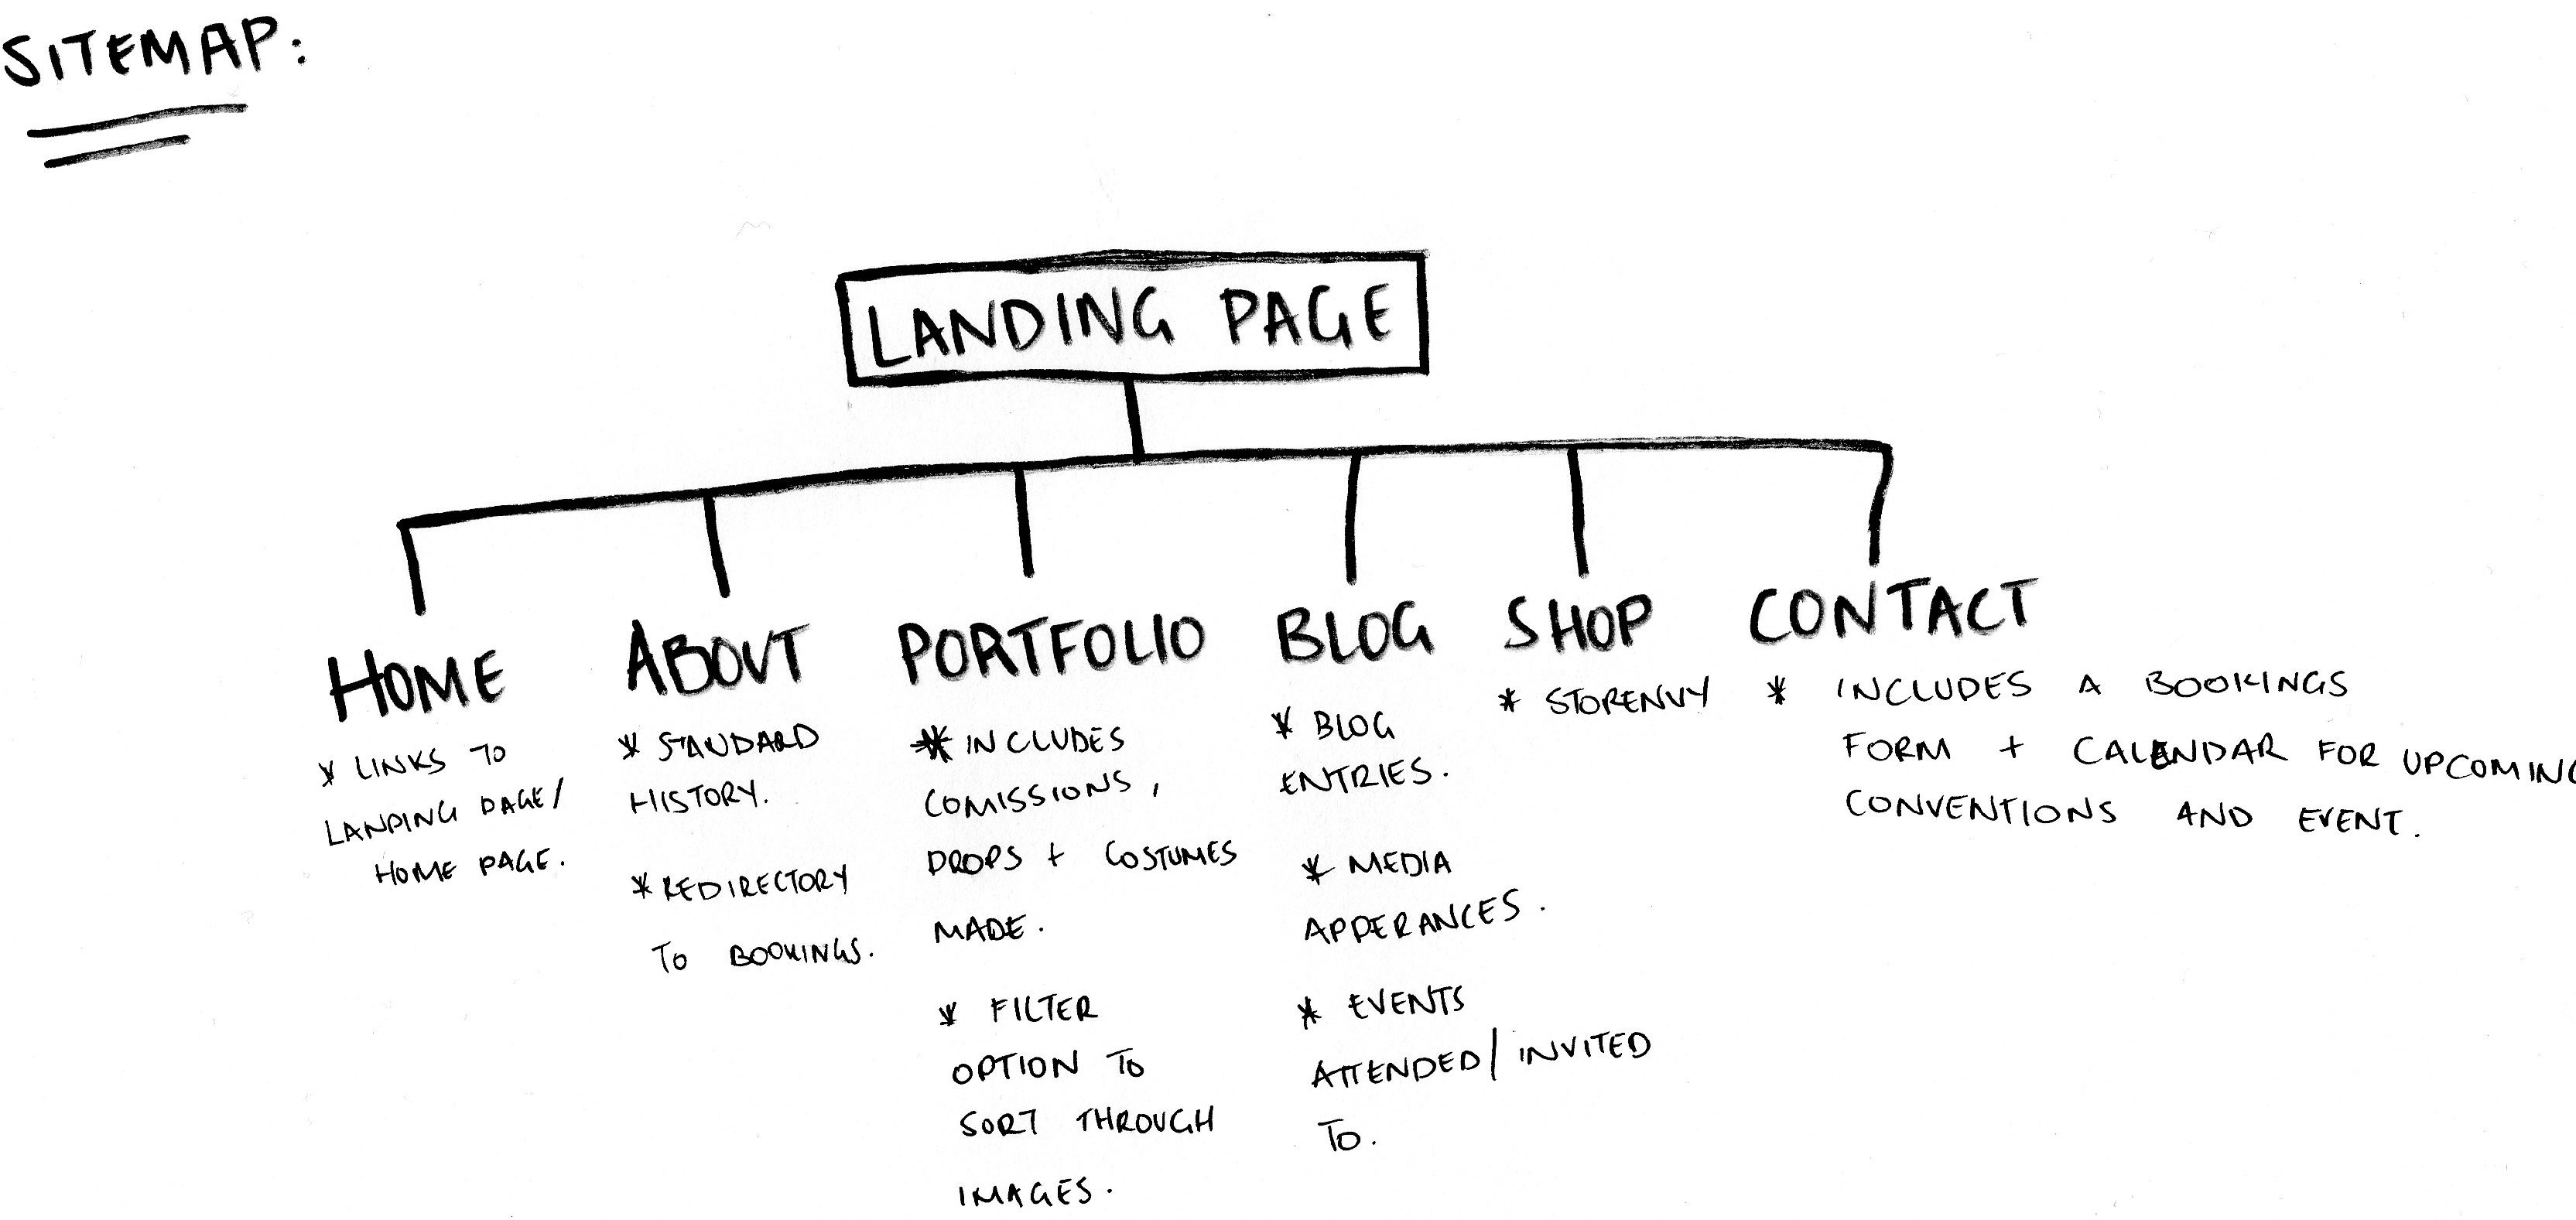 SITEMAP:
LANDING PAGE
HOME
* LINKS TO
LANDING PAGE/
HOME PAGE.
ABOUT
* STANDARD
HISTORY.
* REDIRECTORY
TO BOOKINGS.
PORTFOLIO
* INCLUDES
COMISSIONS,
PROPS + COSTUMES
MADE.
* FILTER
OPTION TO
SORT THROUGH
IMAGES.
BLOG
* BLOG
ENTRIES.
* MEDIA
APPERANCES.
* EVENTS
ATTENDED/INVITED
TO.
SHOP
* STORENVY
CONTACT
* INCLUDES A BOOKINGS
FORM + CALENDAR FOR UPCOMING
CONVENTIONS AND EVENT.